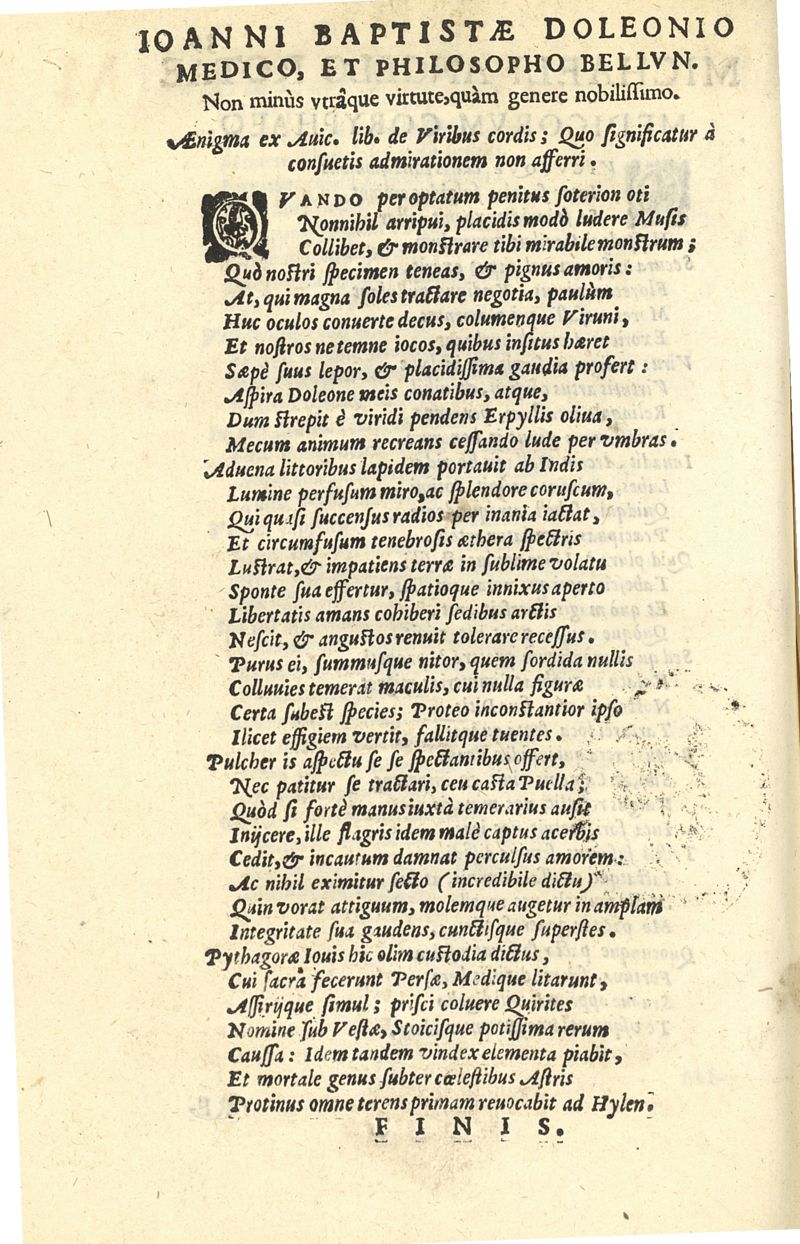 IOANNI BAPTISTÆ DOLEONIO
MEDICO, ET PHILOSOPHO BELLVN.
Non minùs vtrâque virtute, quàm genere nobilissimo.
Ænigma ex Auic. lib. de Viribus cordis; Quo significatur à
consuetis admirationem non afferri.
QVANDO per optatum penitus soterion oti
Nonnihil arripui, placidis modò ludere Musis
Collibet, & monstrare tibi mirabile monstrum;
Quò nostri specimen teneas, & pignus amoris:
At, qui magna soles tractare negotia, paulùm
Huc oculos conuerte decus, columenque Viruni,
Et nostros ne temne iocos, quibus insitus hæret
Sæpè suus lepor, & placidissima gaudia profert:
Aspira Doleone meis conatibus, atque,
Dum strepit è viridi pendens Erpyllis oliua,
Mecum animum recreans cessando lude per vmbras.
Aduena littoribus lapidem portauit ab Indis
Lumine perfusum miro, ac splendore coruscum,
Qui quasi succensus radios per inania iactat,
Et circumfusum tenebrosis æthera spectris
Lustrat, & impatiens terræ in sublime volatu
Sponte sua effertur, spatioque innixus aperto
Libertatis amans cohiberi sedibus arctis
Nescit, & angustos renuit tolerare recessus.
Purus ei, summusque nitor, quem sordida nullis
Colluuies temerat maculis, cui nulla figuræ
Certa subest species; Proteo inconstantior ipso
Ilicet effigiem vertit, fallitque tuentes.
Pulcher is aspectu se se spectantibus offert,
Nec patitur se tractari, ceu casta Puella;
Quòd si fortè manus iuxtà temerarius ausit
Inijcere, ille flagris idem malè captus acerbis
Cedit, & incautum damnat perculsus amorem:
Ac nihil eximitur secto (incredibile dictu)
Quin vorat attiguum, molemque augetur in amplam
Integritate sua gaudens, cunctisque superstes.
Pythagoræ Iouis hic olim custodia dictus,
Cui sacra fecerunt Persæ, Medique litarunt,
Assirijque simul; prisci coluere Quirites
Nomine sub Vestæ, Stoicisque potissima rerum
Caussa: Idem tandem vindex elementa piabit,
Et mortale genus subter cœlestibus Astris
Protinus omne terens primam reuocabit ad Hylen.
FINIS.